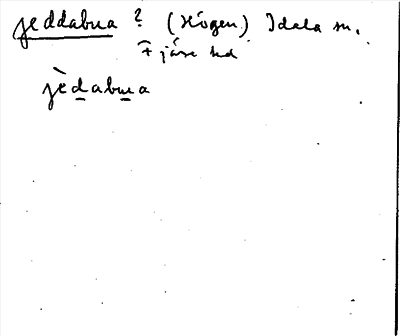 jeddabua ? (Högen) Idala sn.
jèdabua